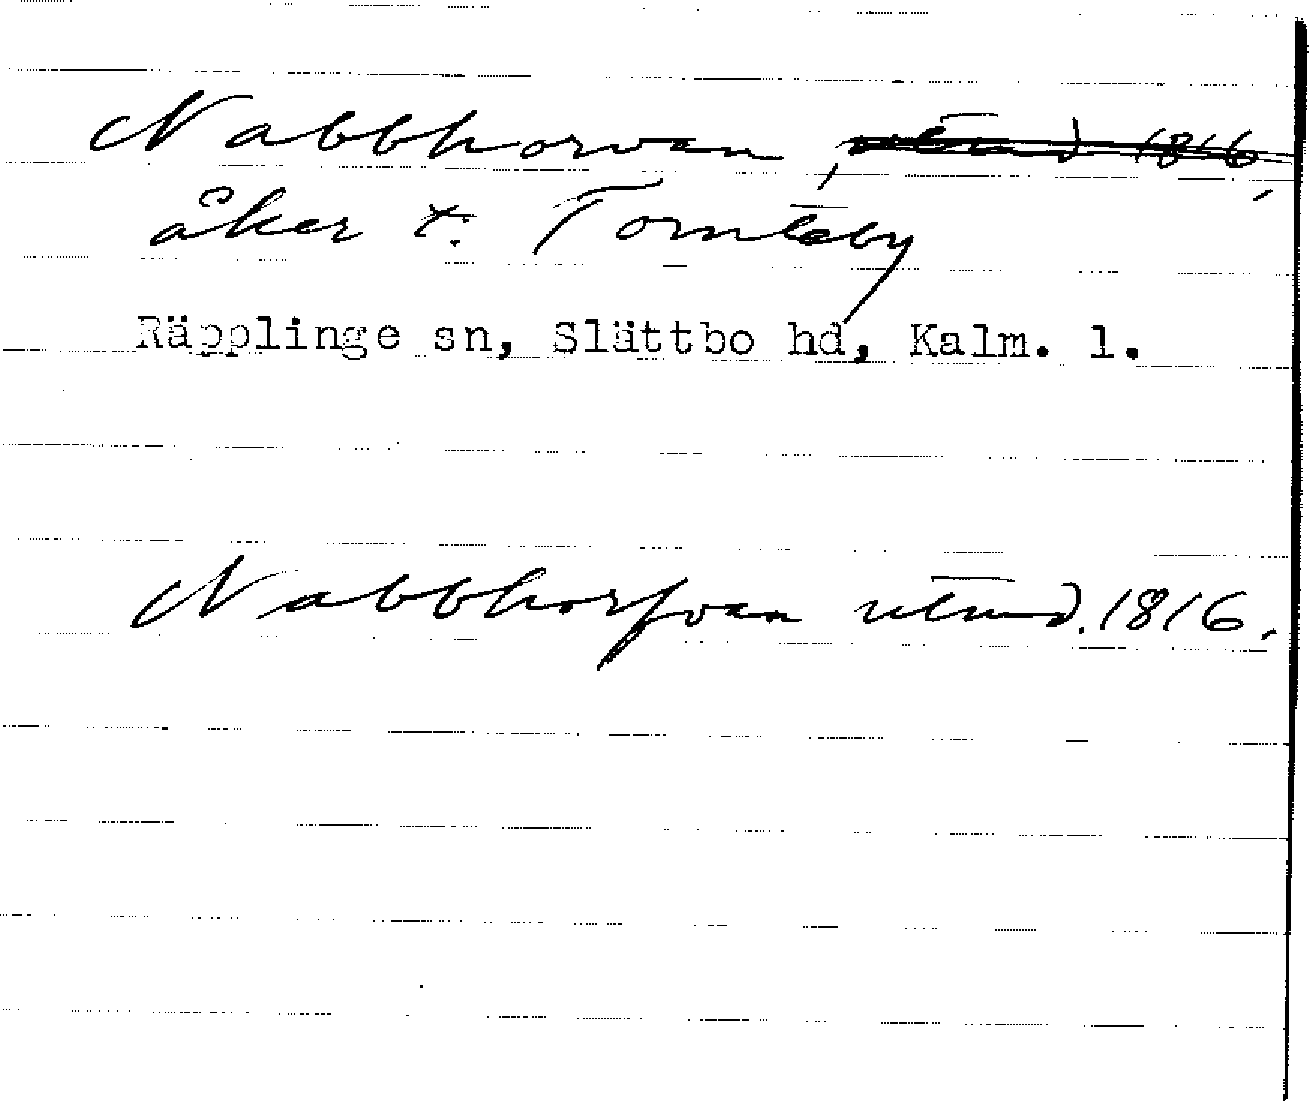 Nabbhorvan, utmd 1816,
åker t. Tomteby
Räpplinge sn, Slättbo hd, Kalm. l.
Nabbhorfvan utmd. 1816.